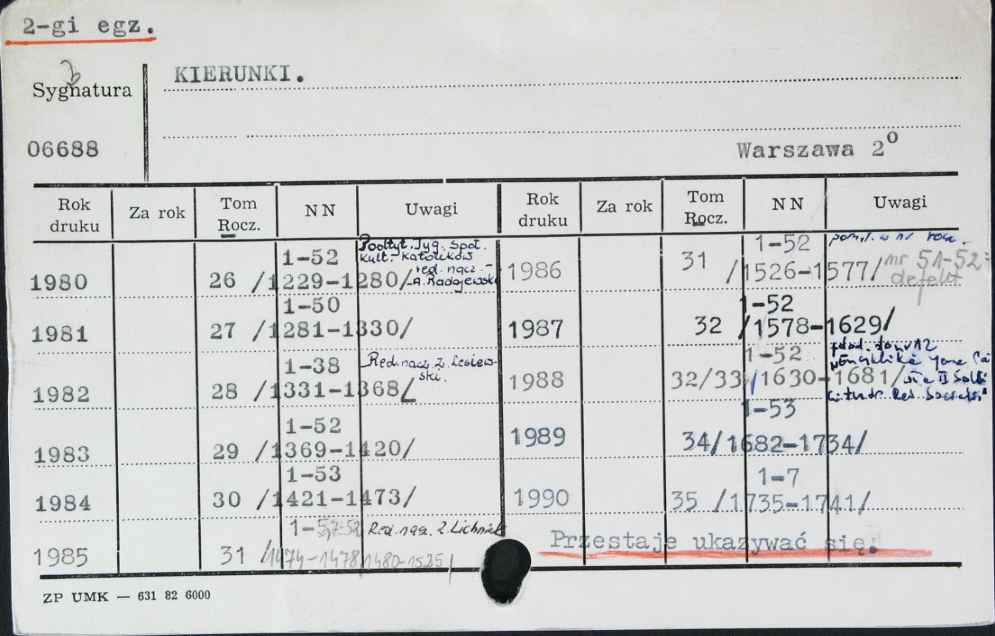 2-gi egz.
Sygnatura
KIERUNKI.
06688
Warszawa 2°
Rok druku Za rok Tom Rocz. NN Uwagi Rok druku Za rok Tom Rocz. NN Uwagi
1980 26 1-52 /1229-1280/ Tyg. Społ. Kult. Katolików red. nacz. - A. Radojewski
1981 27 1-50 /1281-1330/
1982 28 1-38 /1331-1368/ Red. nacz. Z. Lesiewski.
1983 29 1-52 /1369-1420/
1984 30 1-53 /1421-1473/
1985 31 1- /1474-1478/1480-1525/ Red. nacz. Z.
1986 31 1-52 /1526-1577/ nr 51-52 = defekt
1987 32 1-52 /1578-1629/
1988 32/33 1-52 /1630-1681/
1989 34 1-53 /1682-1734/
1990 35 1-7 /1735-1741/
Przestaje ukazywać się.
ZP UMK — 631 82 6000